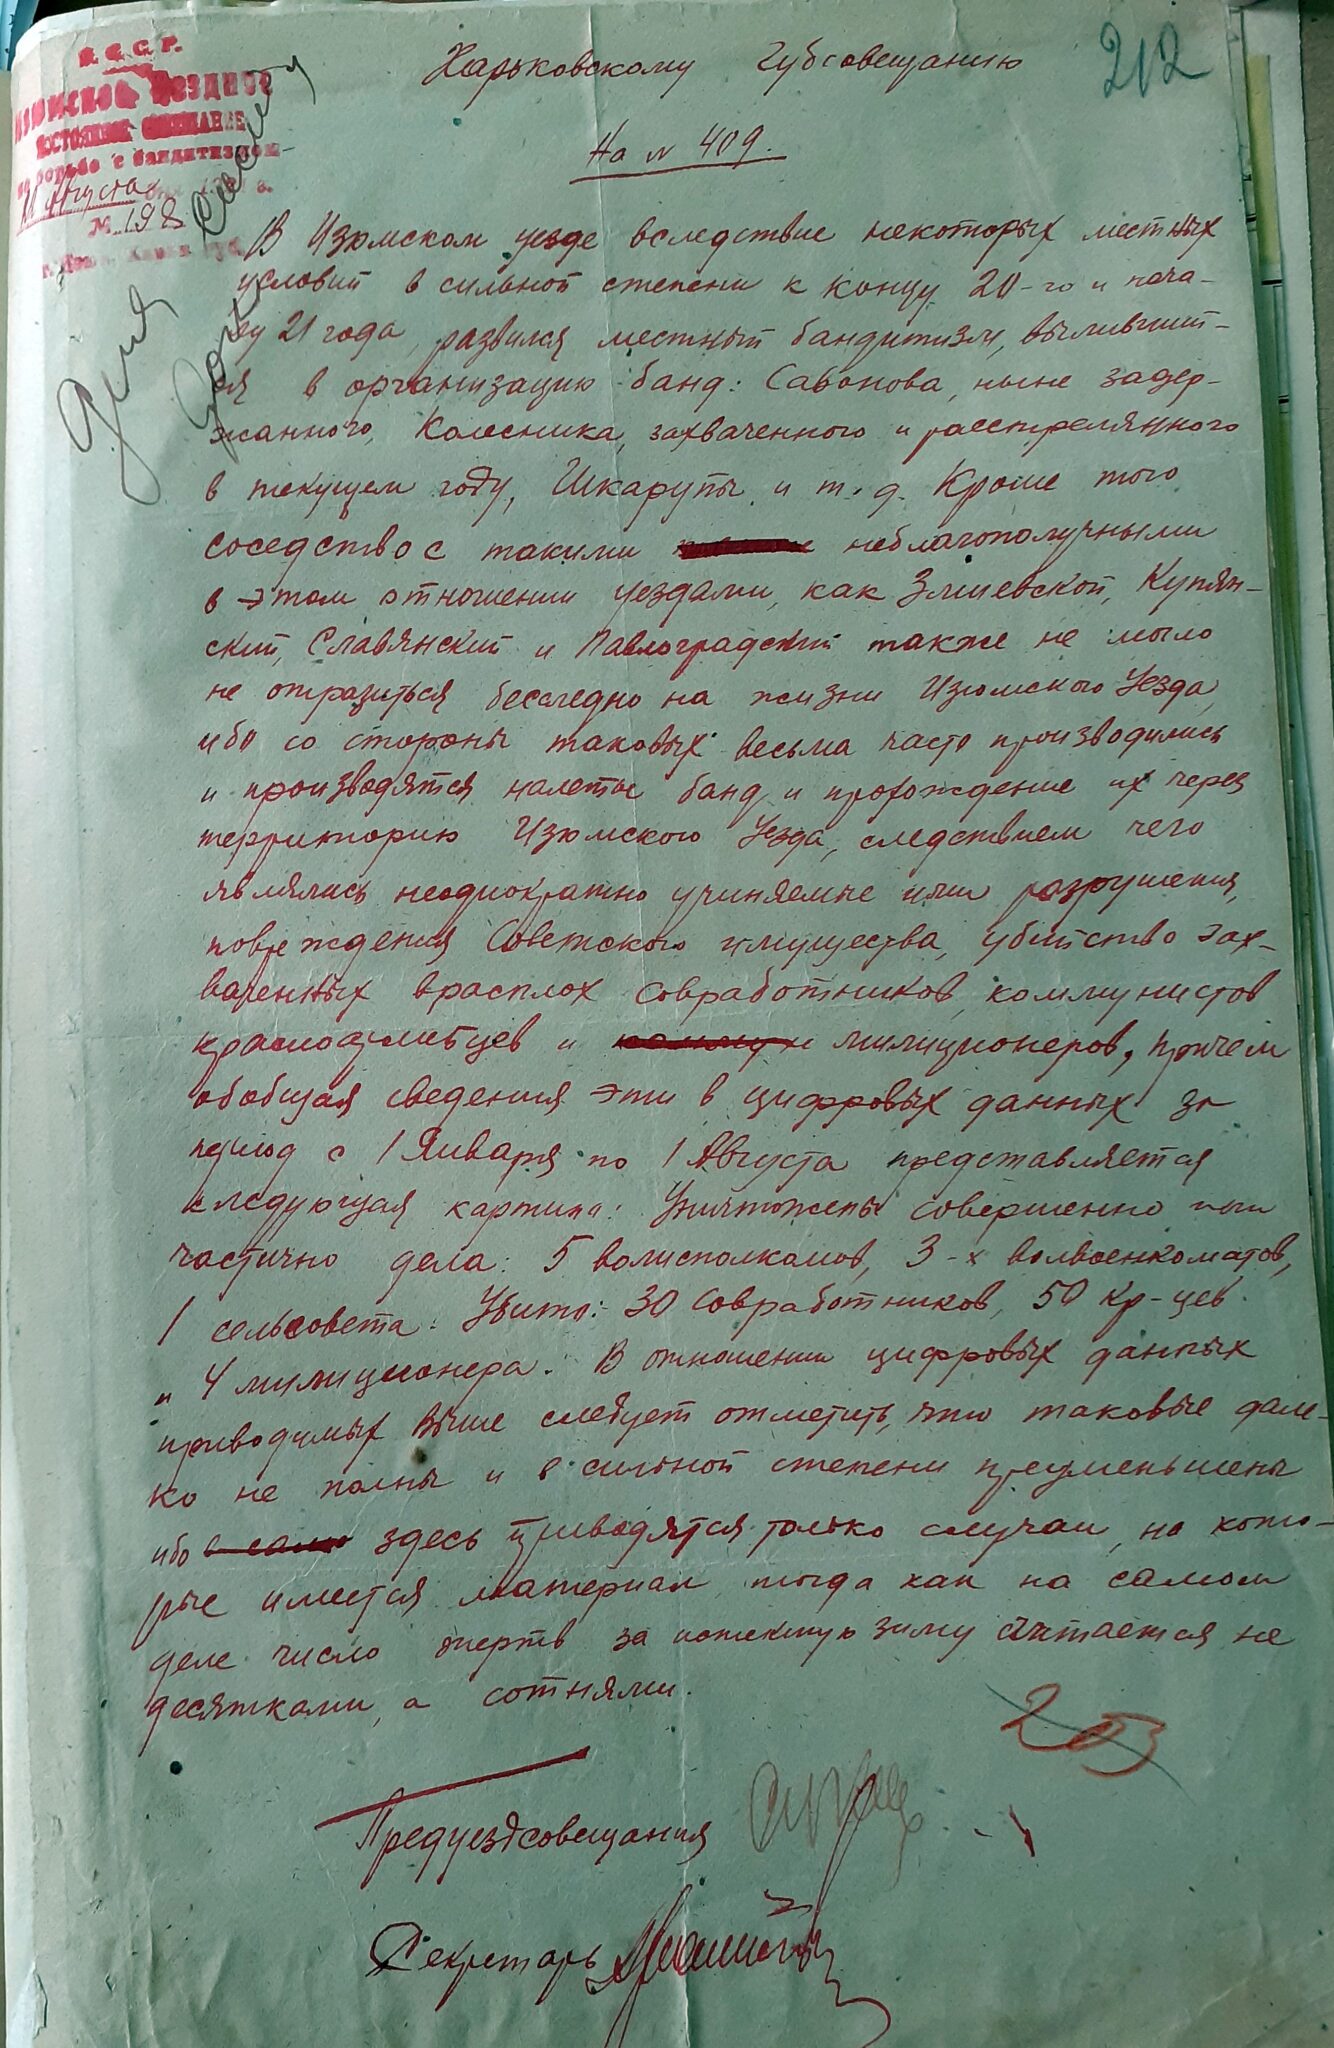 212
Харьковскому Губсовещанию
На № 409.
У.С.С.Р.
Изюмское Уездное
постоянное совещание
по борьбе с бандитизмом
11 Августа дня 1921 г.
№ 198
В Изюмском уезде вследствие некоторых местных
условий в сильной степени к концу 20-го и нача-
лу 21 года, развился местный бандитизм, вылившийт-
ся в организацию банд: Савонова, ныне задер-
жанного, Колесника, захваченного и расстрелянного
в текущем году, Шкарупы и т.д. Кроме того
соседство с такими неблагополучными
в этом отношении уездами, как Змиевской, Купян-
ский, Славянский и Павлоградский также не мыло
не отразиться бесследно на жизни Изюмского Уезда,
ибо со стороны таковых весьма часто производились
и производятся налеты банд и прохождение их через
территорию Изюмского Уезда, следствием чего
являлись неоднократно учиняемые ими разрушения,
повреждения Советского имущества, убийство зах-
ваченных врасплох Совработников, коммунистов
красноармейцев и милиционеров, причем
обобщая сведения эти в цифровых данных за
период с 1 Января по 1 Августа представляется
следующая картина: Уничтожены совершенно или
частично дела: 5 волисполкомов, 3-х волвоенкоматов,
1 сельсовета. Убито: 30 Совработников, 50 кр-цев
и 4 милиционера. В отношении цифровых данных
приводимых выше следует отметить, что таковые дале-
ко не полны и в сильной степени преуменьшены
ибо здесь приводятся только случаи, на кото-
рые имеется материал, тогда как на самом
деле число жертв за истекшую зиму считается не
десятками, а сотнями.
203
Предуездсовещания
Секретарь